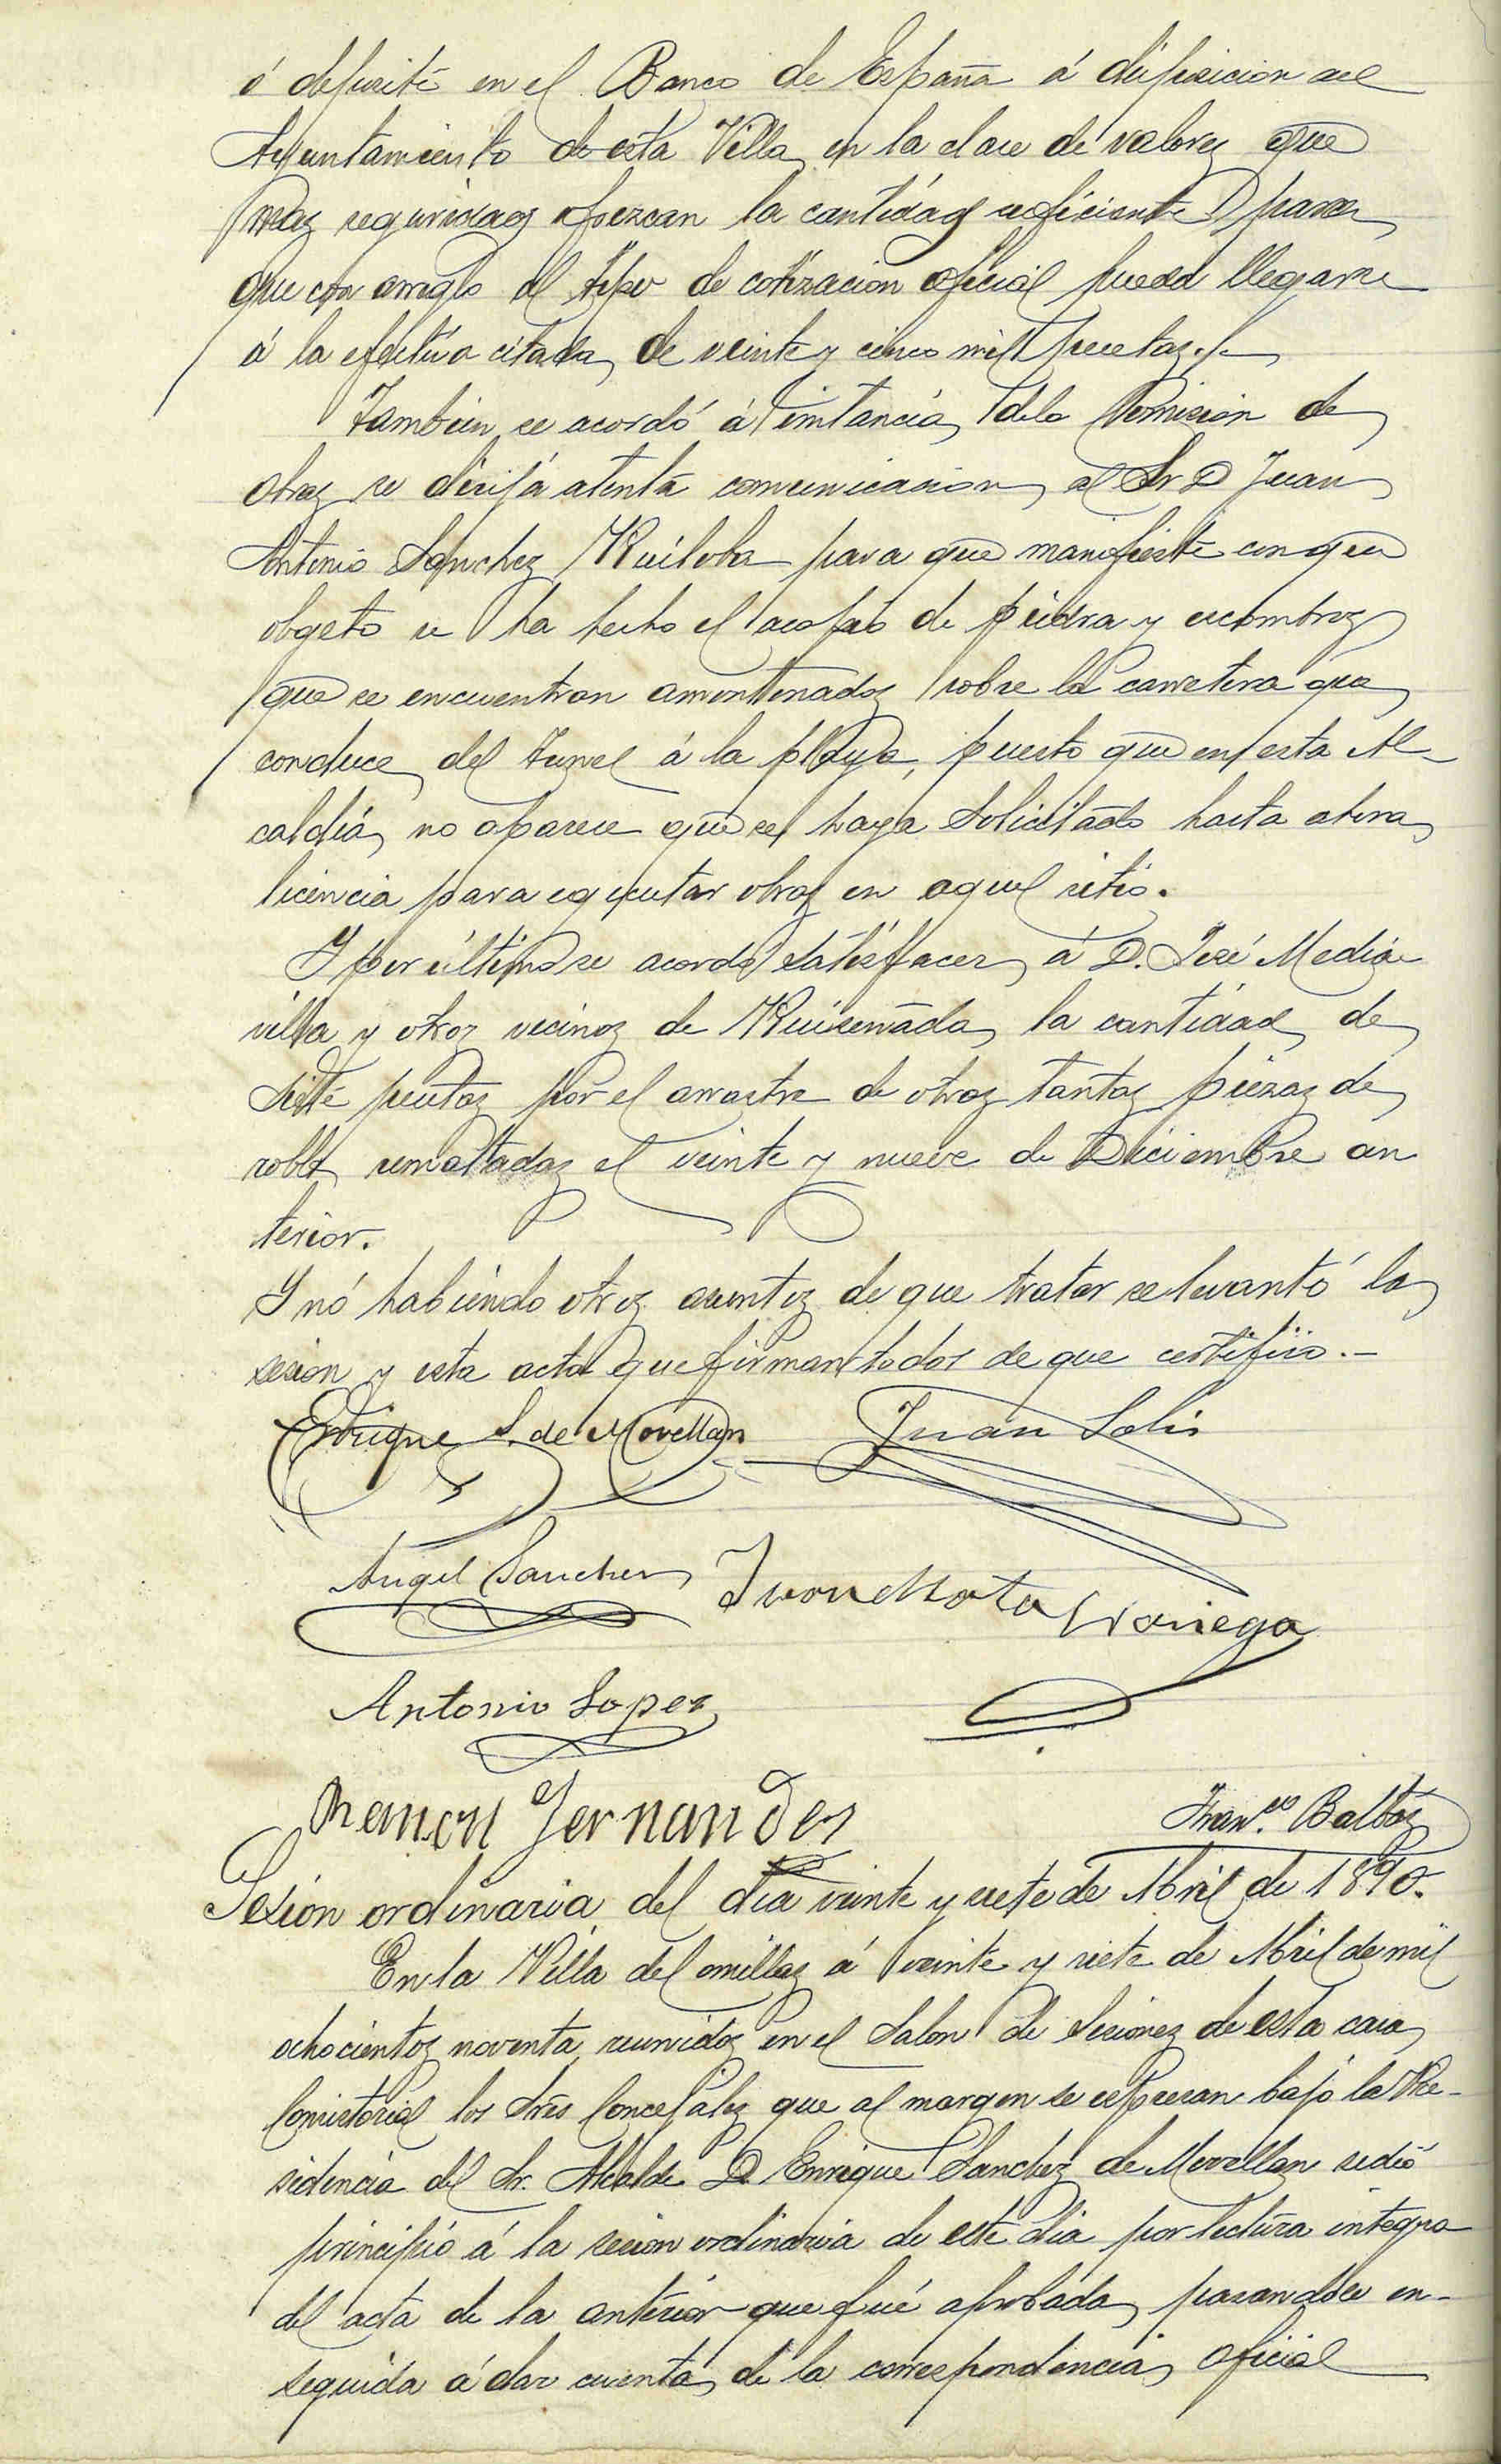 ó deposite en el Banco de España á disposicion del
Ayuntamiento de esta Villa en la clase de valores que
mas seguridades ofrezcan la cantidad suficiente para
que con arreglo al tipo de cotizacion oficial pueda llegarse
á la efectiva citada de veinte y cinco mil pesetas.
Tambien se acordó á instancia de la Comision de
obras se dirija atenta comunicacion al Sr D Juan
Antonio Sanchez Ruiloba para que manifieste con que
obgeto se ha hecho el acopio de piedra y escombros
que se encuentran amontonados sobre la carretera que
conduce del tunel á la playa, puesto que en esta Al-
caldia, no aparece que se haya Solicitado hasta ahora
licencia para egecutar obras en aquel sitio.
Y por último se acordó satisfacer á D. José Media
villa y otros vecinos de Ruiseñada, la cantidad de
siete pesetas por el arrastre de otras tantas piezas de
roble rematadas el veinte y nueve de Diciembre an
terior.
Y nó habiendo otros asuntos de que tratar se levantó la
sesion y esta acta que firman todos de que certifico.-
Enrique S. de Movellan Juan Solis
Angel Sanchez Juan Mata Noriega
Antonio Lopez
Ramon Fernandez Fran.co Balbás
Sesion ordinaria del dia veinte y siete de Abril de 1890.
En la Villa de Comillas á veinte y siete de Abril de mil
ochocientos noventa, reunidos en el Salon de Sesiones de esta casa
Consistorial los Sres Concejales que al margen se espresan bajo la Pre-
sidencia del Sr. Alcalde D. Enrique Sanchez de Movellan se dió
principio á la sesion ordinaria de este dia por lectura integra
del acta de la anterior que fué aprobada, pasandose en-
seguida á dar cuenta de la correspondencia oficial